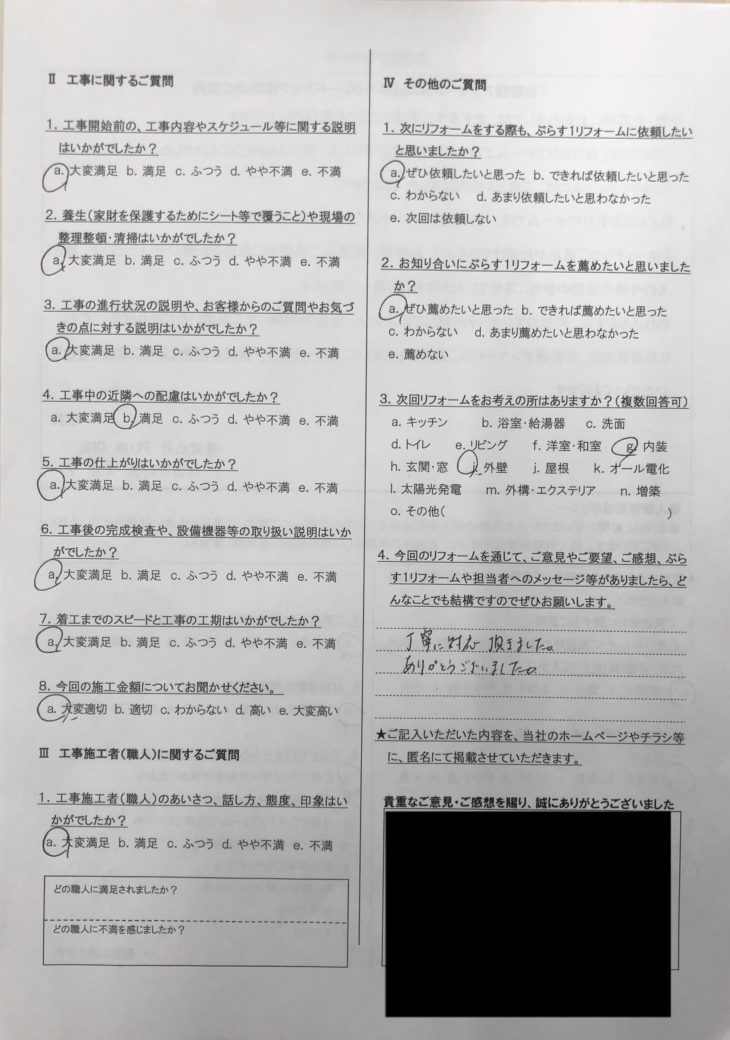 Ⅱ 工事に関するご質問
1. 工事開始前の、工事内容やスケジュール等に関する説明
はいかがでしたか？
a. 大変満足 b. 満足 c. ふつう d. やや不満 e. 不満
2. 養生(家財を保護するためにシート等で覆うこと)や現場の
整理整頓・清掃はいかがでしたか？
a. 大変満足 b. 満足 c. ふつう d. やや不満 e. 不満
3. 工事の進行状況の説明や、お客様からのご質問やお気づ
きの点に対する説明はいかがでしたか？
a. 大変満足 b. 満足 c. ふつう d. やや不満 e. 不満
4. 工事中の近隣への配慮はいかがでしたか？
a. 大変満足 b. 満足 c. ふつう d. やや不満 e. 不満
5. 工事の仕上がりはいかがでしたか？
a. 大変満足 b. 満足 c. ふつう d. やや不満 e. 不満
6. 工事後の完成検査や、設備機器等の取り扱い説明はいか
がでしたか？
a. 大変満足 b. 満足 c. ふつう d. やや不満 e. 不満
7. 着工までのスピードと工事の工期はいかがでしたか？
a. 大変満足 b. 満足 c. ふつう d. やや不満 e. 不満
8. 今回の施工金額についてお聞かせください。
a. 大変適切 b. 適切 c. わからない d. 高い e. 大変高い
Ⅲ 工事施工者(職人)に関するご質問
1. 工事施工者(職人)のあいさつ、話し方、態度、印象はい
かがでしたか？
a. 大変満足 b. 満足 c. ふつう d. やや不満 e. 不満
どの職人に満足されましたか？
どの職人に不満を感じましたか？
Ⅳ その他のご質問
1. 次にリフォームをする際も、ぷらす1リフォームに依頼したい
と思いましたか？
a. ぜひ依頼したいと思った b. できれば依頼したいと思った
c. わからない d. あまり依頼したいと思わなかった
e. 次回は依頼しない
2. お知り合いにぷらす1リフォームを薦めたいと思いました
か？
a. ぜひ薦めたいと思った b. できれば薦めたいと思った
c. わからない d. あまり薦めたいと思わなかった
e. 薦めない
3. 次回リフォームをお考えの所はありますか？(複数回答可)
a. キッチン b. 浴室・給湯器 c. 洗面
d. トイレ e. リビング f. 洋室・和室 g. 内装
h. 玄関・窓 i. 外壁 j. 屋根 k. オール電化
l. 太陽光発電 m. 外構・エクステリア n. 増築
o. その他( )
4. 今回のリフォームを通じて、ご意見やご要望、ご感想、ぷら
す1リフォームや担当者へのメッセージ等がありましたら、ど
んなことでも結構ですのでぜひお願いします。
丁寧に対応頂きました。
ありがとうございました。
★ご記入いただいた内容を、当社のホームページやチラシ等
に、匿名にて掲載させていただきます。
貴重なご意見・ご感想を賜り、誠にありがとうございました